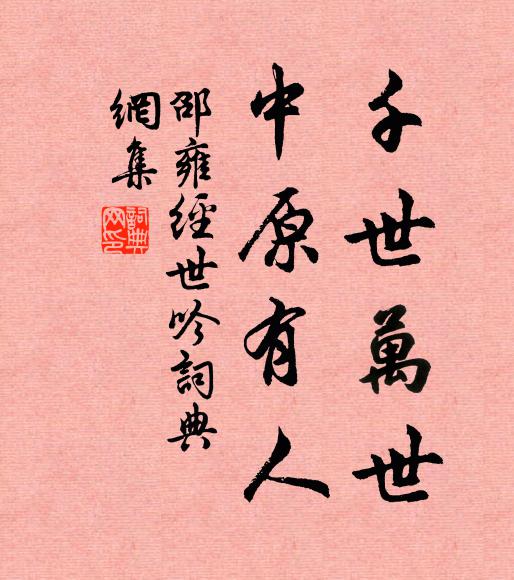 千世萬世
中原有人
邵雍經世吟詞典
網集
詞典網印